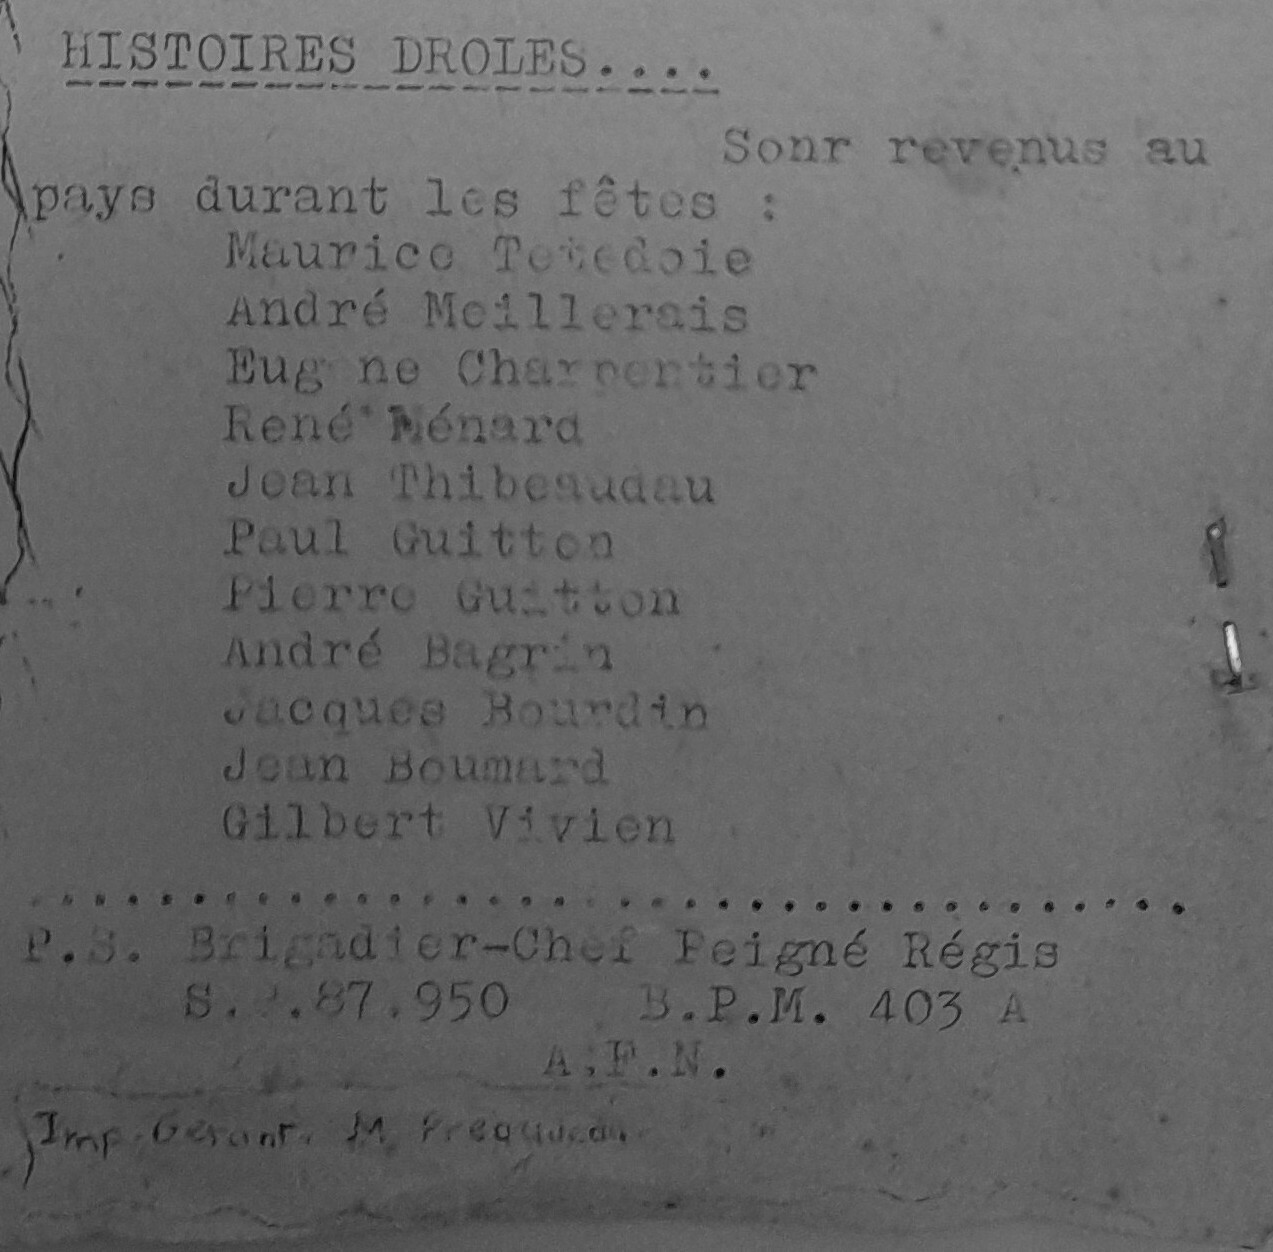 HISTOIRES DROLES....
Sonr revenus au
pays durant les fêtes :
Maurice Tetedoie
André Meillerais
Eug ne Charpentier
René Ménard
Jean Thibeaudau
Paul Guitton
Pierre Guitton
André Bagrin
Jacques Bourdin
Jean Boumard
Gilbert Vivien
........................................
P.S. Brigadier-Chef Peigné Régis
S. .87.950 B.P.M. 403 A
A.F.N.
Imp. Gérant. M